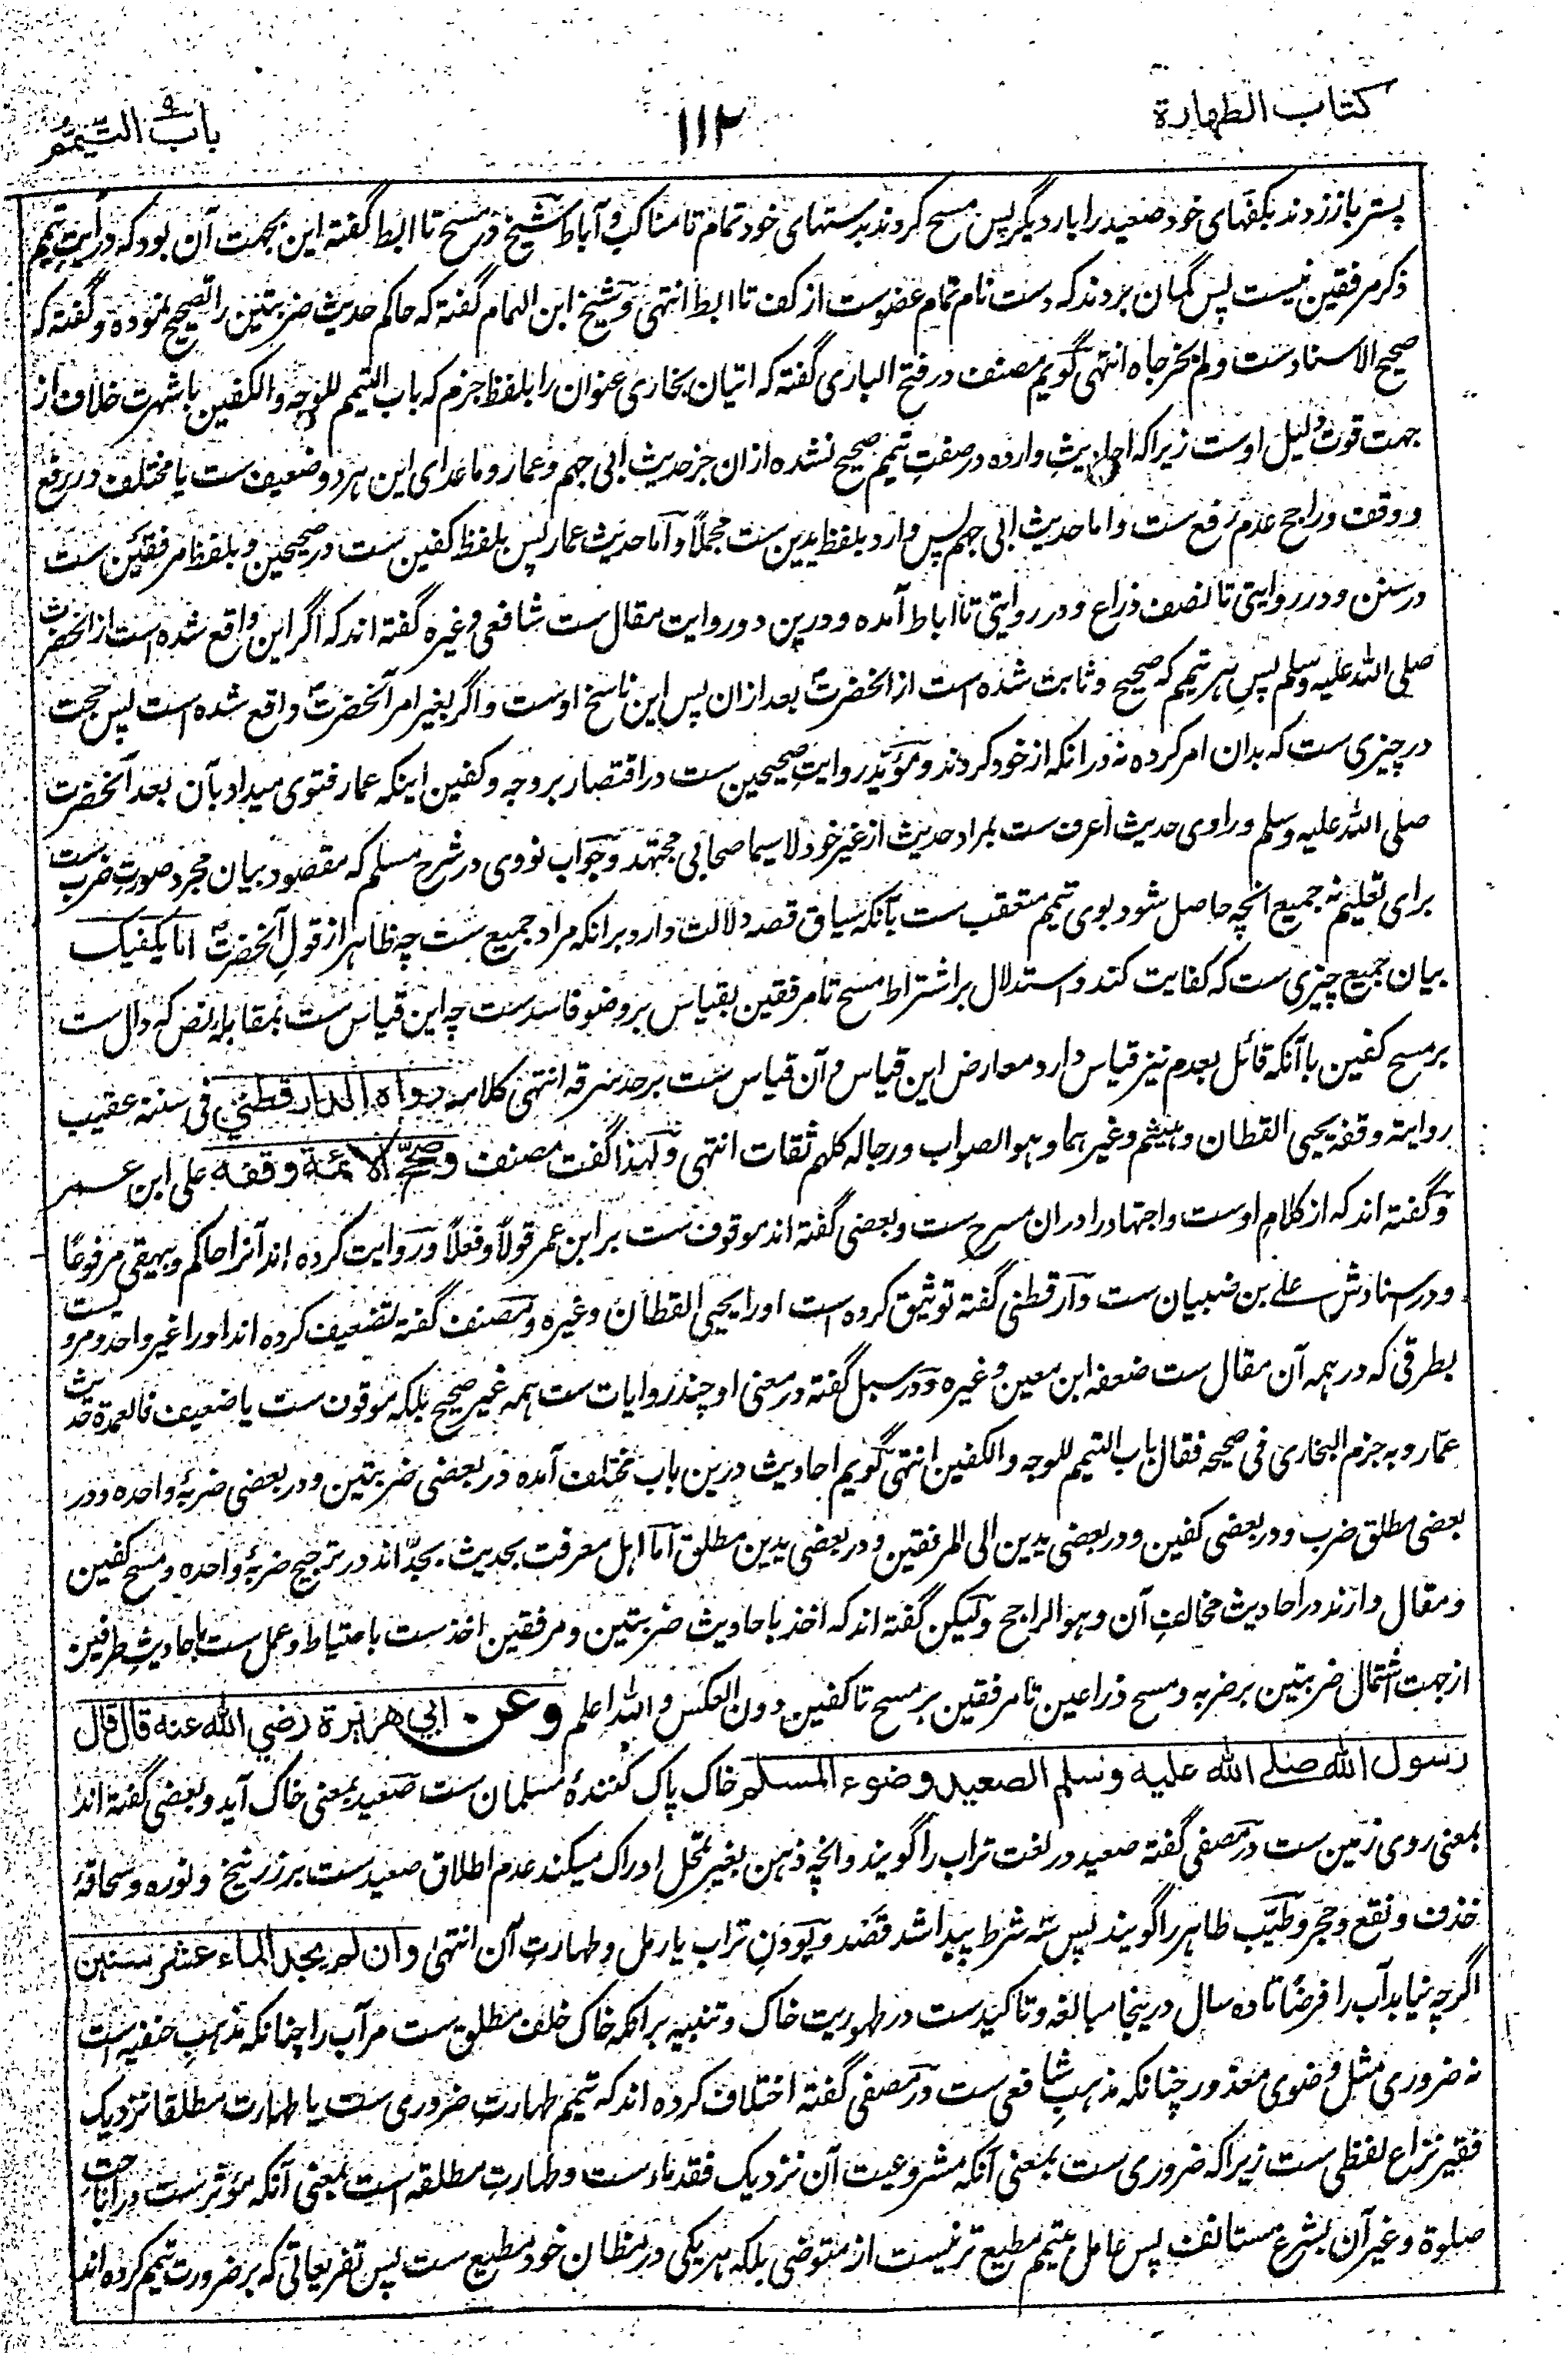 کتاب الطهارة
۱۱۲
باب التیمم
پستر باز زدند بکفهای خود صعید را بار دیگر پس مسح کردند بدستهای خود تمام تا مناکب و آباط شیخ در مسح تا ابط گفته این بجهت آن بود که در آیت تیمم
ذکر مرفقین نیست پس گمان بردند که دست نام تمام عضوست از کف تا ابط انتهی و شیخ ابن الهمام گفته که حاکم حدیث ضربتین را تصحیح نموده و گفته که
صحیح الاسنادست ولم یخرجاه انتهی گویم مصنف در فتح الباری گفته که اتیان بخاری عنوان را بلفظ جزم که باب التیمم للوجه والکفین با شهرت خلاف از
جهت قوت دلیل اوست زیرا که احادیث وارده در صفت تیمم صحیح نشده ازان جز حدیث ابی جهم و عمار و ماعدای این هر دو ضعیف ست یا مختلف در رفع
و وقف و راجح عدم رفع ست و اما حدیث ابی جهم پس وارد بلفظ یدین ست مجملاً و اما حدیث عمار پس بلفظ کفین ست در صحیحین و بلفظ مرفقین ست
در سنن و در روایتی تا نصف ذراع و در روایتی تا اباط آمده و درین دو روایت مقال ست شافعی و غیره گفته اند که اگر این واقع شده است از آنحضرت
صلی الله علیه وسلم پس هر تیمم که صحیح و ثابت شده است از آنحضرت بعد ازان پس این ناسخ اوست و اگر بغیر امر آنحضرت واقع شده است پس حجت
در چیزی ست که بدان امر کرده نه در آنکه از خود کردند و مؤید روایت صحیحین ست در اقتصار بر وجه و کفین اینکه عمار فتوی میداد بآن بعد آنحضرت
صلی الله علیه وسلم و راوی حدیث اعرف ست بمراد حدیث از غیر خود لاسیما صحابی مجتهد و جواب نووی در شرح مسلم که مقصود بیان مجرد صورت ضرب ست
برای تعلیم نه جمیع انچه حاصل شود بوی تیمم متعقب ست بآنکه سیاق قصه دلالت دارد بر آنکه مراد جمیع ست چه ظاهر از قول آنحضرت انما یکفیک
بیان جمیع چیزی ست که کفایت کند و استدلال بر اشتراط مسح تا مرفقین بقیاس بر وضو فاسدست چه این قیاس ست بمقابله نص که دال ست
بر مسح کفین با آنکه قائل بعدم نیز قیاس دارد معارض این قیاس و آن قیاس ست بر حد سرقه انتهی کلامه رواه الدارقطنی فی سننه عقیب
روایته وقفه یحیی القطان و هیثم و غیرهما و هو الصواب و رجاله کلهم ثقات انتهی و لهذا گفت مصنف و صحح الائمة وقفه علی ابن عمر
و گفته اند که از کلام اوست و اجتهاد را دران مسرح ست و بعضی گفته اند موقوف ست بر ابن عمر قولاً و فعلاً و روایت کرده اند آنرا حاکم و بیهقی مرفوعاً
و در اسنادش علی بن ضبیان ست دارقطنی گفته توثیق کرده است او را یحیی القطان و غیره و مصنف گفته تضعیف کرده اند او را غیر واحد و مرویست
بطرقی که در همه آن مقال ست ضعفه ابن معین و غیره و در سبل گفته در معنی او چند روایات ست همه غیر صحیح بلکه موقوف ست یا ضعیف فالعمدة حدیث
عمار و به جزم البخاری فی صحیحه فقال باب التیمم للوجه والکفین انتهی گویم احادیث درین باب مختلف آمده در بعضی ضربتین و در بعضی ضربهٔ واحده و در
بعضی مطلق ضرب و در بعضی کفین و در بعضی یدین الی المرفقین و در بعضی یدین مطلق اما اهل معرفت بحدیث بجدّاند در ترجیح ضربهٔ واحده و مسح کفین
و مقال دارند در احادیث مخالف آن و هو الراجح ولیکن گفته اند که اخذ با حادیث ضربتین و مرفقین اخذست باحتیاط و عمل ست باحادیث طرفین
از جهت اشتمال ضربتین بر ضربه و مسح ذراعین تا مرفقین بر مسح تا کفین دون العکس والله اعلم وعن ابی هریرة رضی الله عنه قال قال
رسول الله صلے الله علیه وسلم الصعید وضوء المسلم خاک پاک کنندهٔ مسلمان ست صعید بمعنی خاک آید و بعضی گفته اند
بمعنی روی زمین ست در مصفی گفته صعید در لغت تراب را گویند و انچه ذهن بغیر تمحل ادراک میکند عدم اطلاق صعید ست بر زرنیخ و نوره و سحاقهٔ
خذف و نقع و حجر و طیّب طاهر را گویند پس سه شرط پیدا شد قصد و بودن تراب یا رمل و طهارت آن انتهی وان لم یجد الماء عشر سنین
اگرچه نیابد آب را فرضاً تا ده سال درینجا مبالغه و تاکیدست در طهوریت خاک و تنبیه بر آنکه خاک خلف مطلق ست مر آب را چنانکه مذهب حنفیه است
نه ضروری مثل وضوی معذور چنانکه مذهب شافعی ست در مصفی گفته اختلاف کرده اند که تیمم طهارت ضروری ست یا طهارت مطلقا نزدیک
فقیر نزاع لفظی ست زیرا که ضروری ست بمعنی آنکه مشروعیت آن نزدیک فقد ماء ست و طهارت مطلقه است بمعنی آنکه مؤثرست در اباحت
صلوة و غیر آن بشرع مستانف پس عامل متیمم مطیع تر نیست از متوضی بلکه هر یکی در مظان خود مطیع ست پس تفریعاتی که بر ضرورت تیمم کرده اند